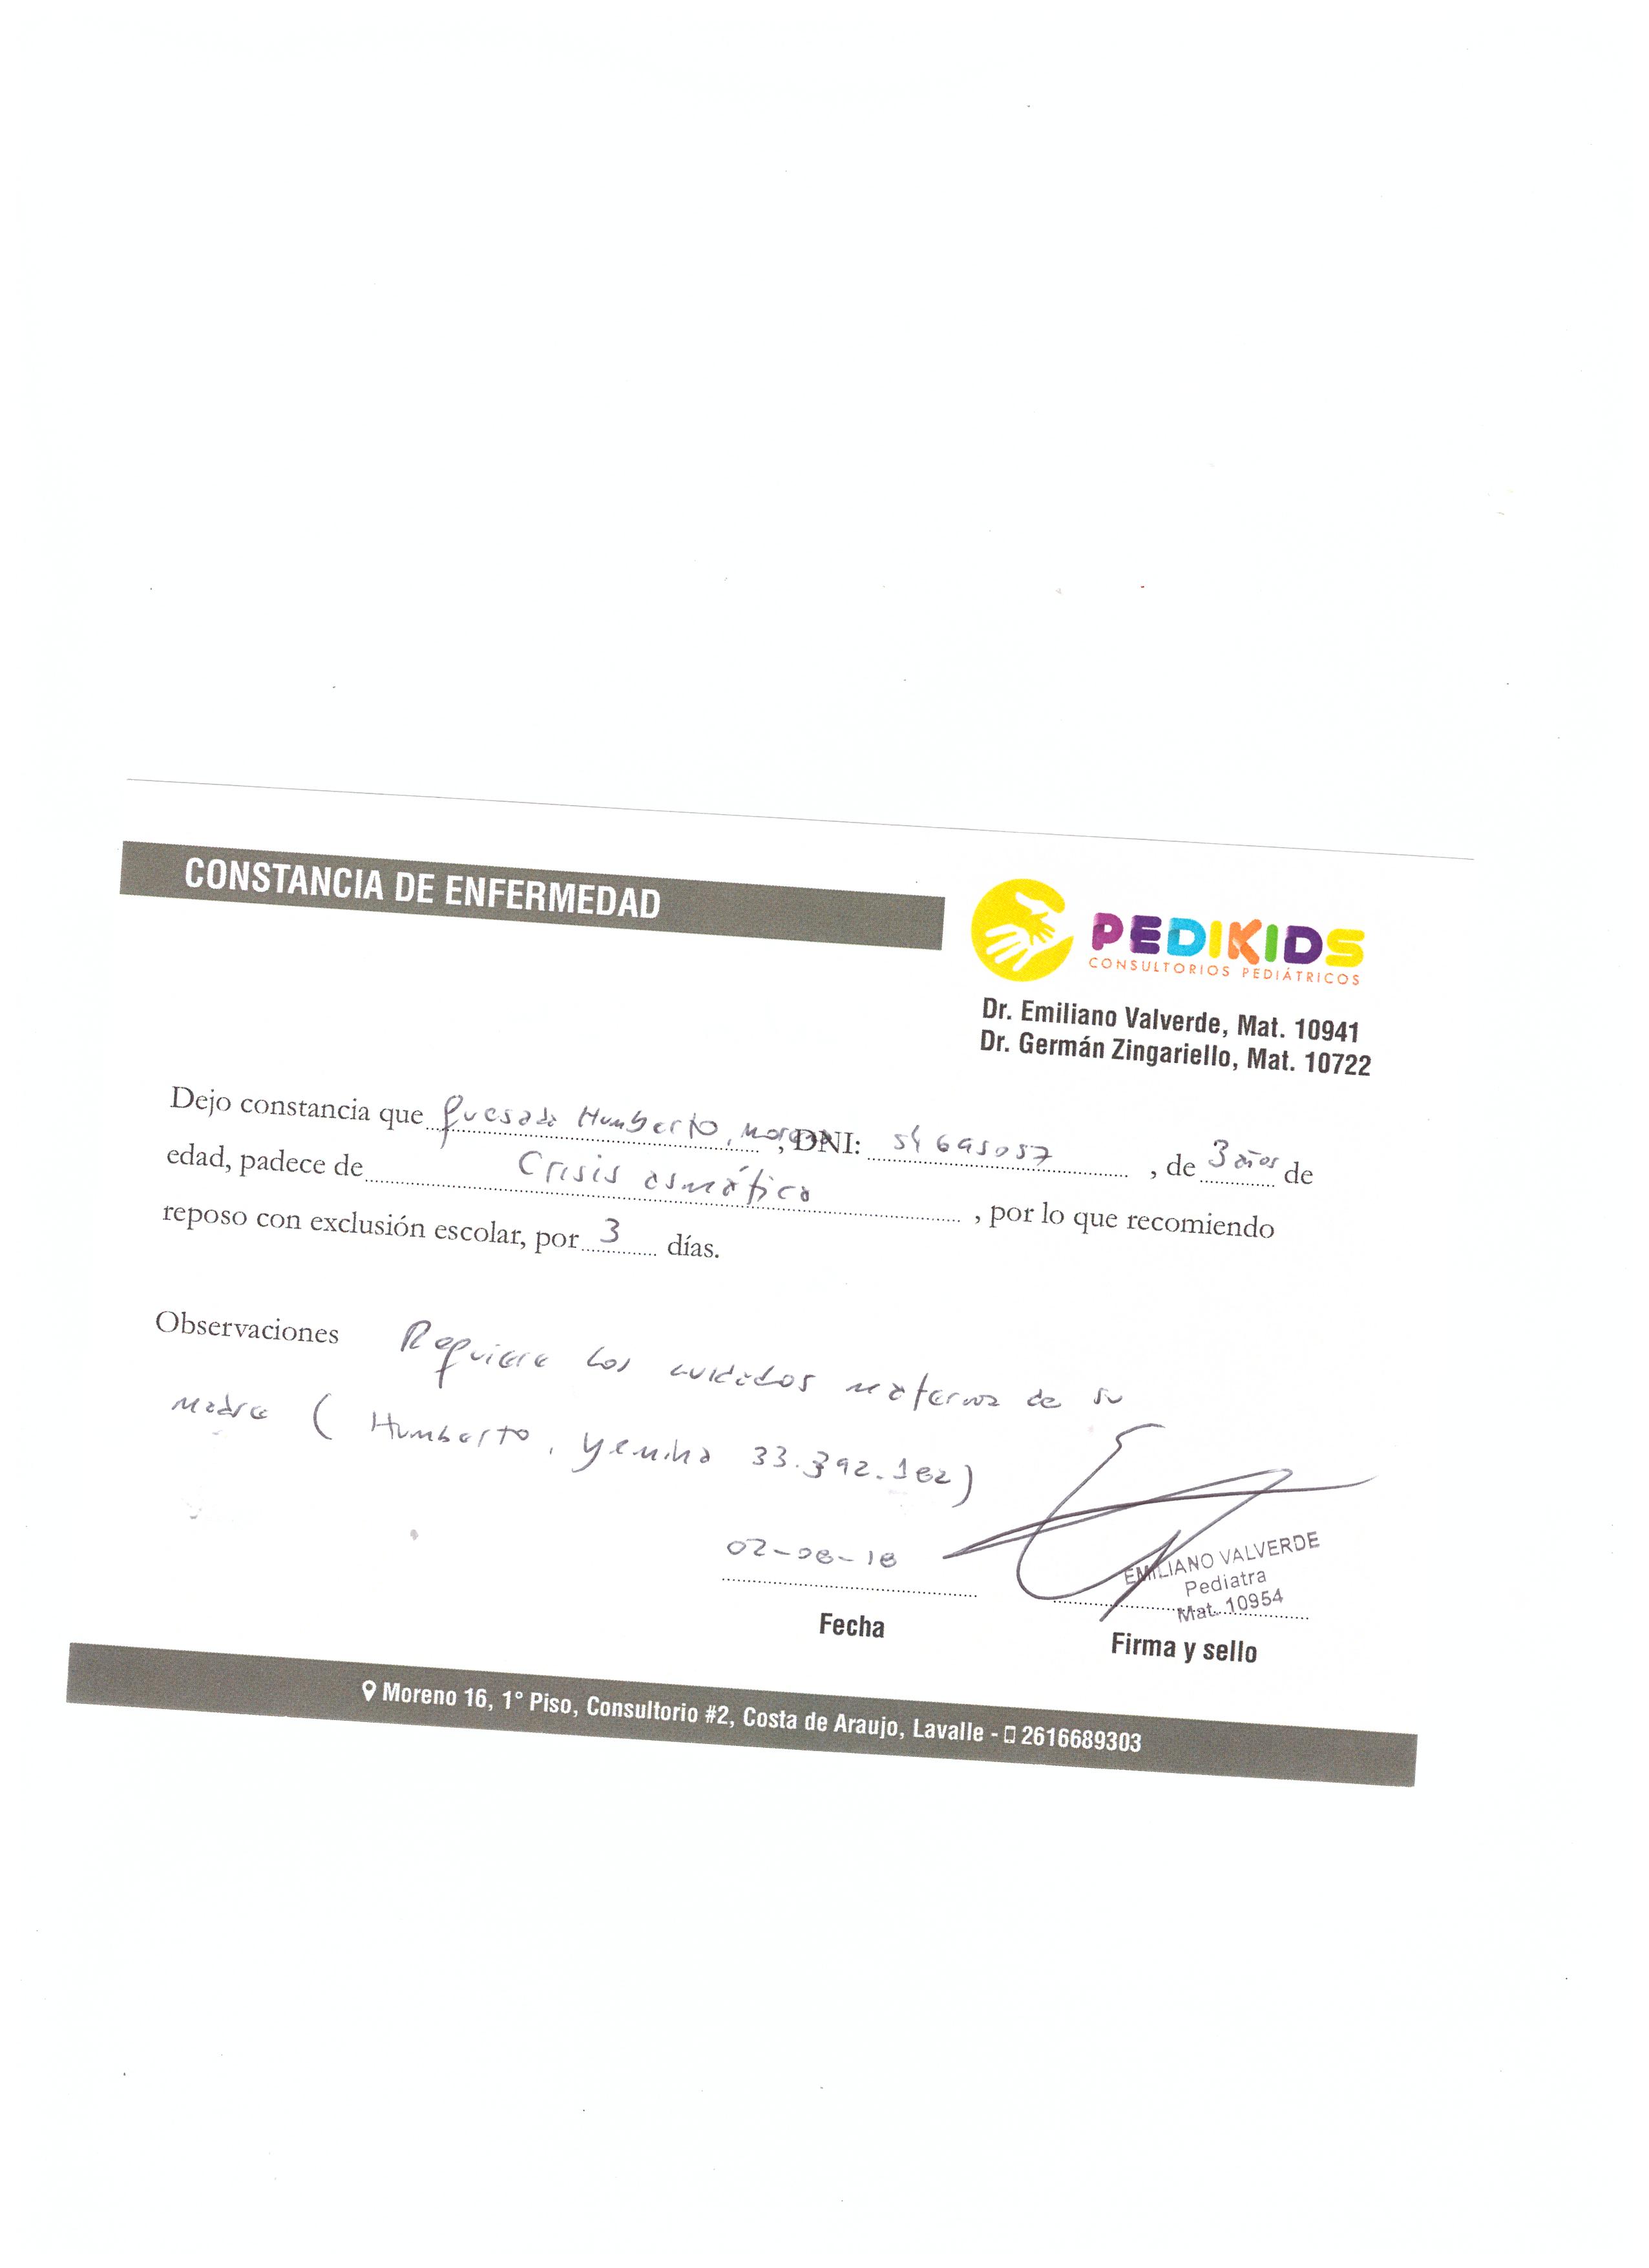 CONSTANCIA DE ENFERMEDAD
PEDIKIDS
CONSULTORIOS PEDIÁTRICOS
Dr. Emiliano Valverde, Mat. 10941
Dr. Germán Zingariello, Mat. 10722
Dejo constancia que Quesada Humberto, Morena, DNI: 54695057, de 3 años de
edad, padece de Crisis asmática, por lo que recomiendo
reposo con exclusión escolar, por 3 días.
Observaciones Requiere los cuidados materna de su
Madre (Humberto, 33.392.182)
02-08-18
EMILIANO VALVERDE
Pediatra
Mat. 10954
Fecha
Firma y sello
Moreno 16, 1° Piso, Consultorio #2, Costa de Araujo, Lavalle - 2616689303